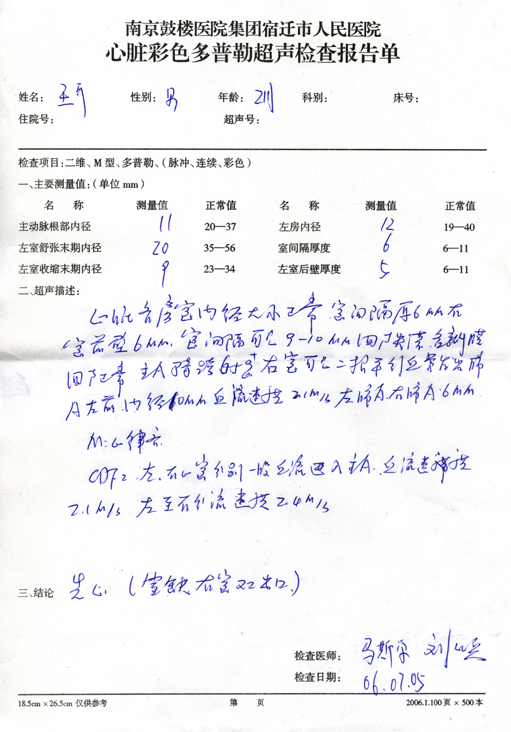 南京鼓楼医院集团宿迁市人民医院
心脏彩色多普勒超声检查报告单
姓名： 性别：男 年龄： 科别： 床号：
住院号： 超声号：
检查项目：二维、M 型、多普勒、（脉冲、连续、彩色）
一、主要测量值：（单位 mm）
名 称 测量值 正常值 名 称 测量值 正常值
主动脉根部内径 11 20—37 左房内径 12 19—40
左室舒张末期内径 20 35—56 室间隔厚度 6 6—11
左室收缩末期内径 9 23—34 左室后壁厚度 5 6—11
二、超声描述：
心脏各房室内径大小正常 室间隔厚6mm 右
室前壁6mm. 室间隔可见9-10mm回声失落 各瓣膜
回声正常 主A骑跨 右室可见二根平行 肺
A左前.内径10mm 血流速度2.1m/s 左肺A.右肺A.6mm
M:心律齐
CDFI: 左.右心室分别一股血流进入主A. 血流速度
2.1m/s 左至右分流速度2.4m/s
三、结论 先心（室缺 右室双出口.）
检查医师：
检查日期：06.07.05
18.5cm×26.5cm 仅供参考 第 页 2006.1.100页×500本